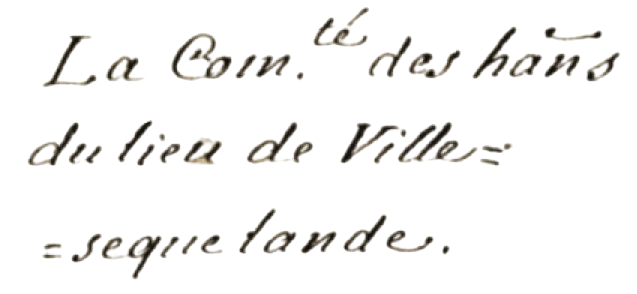 La Com.té des hãns
du lieu de Ville=
=seque lande.